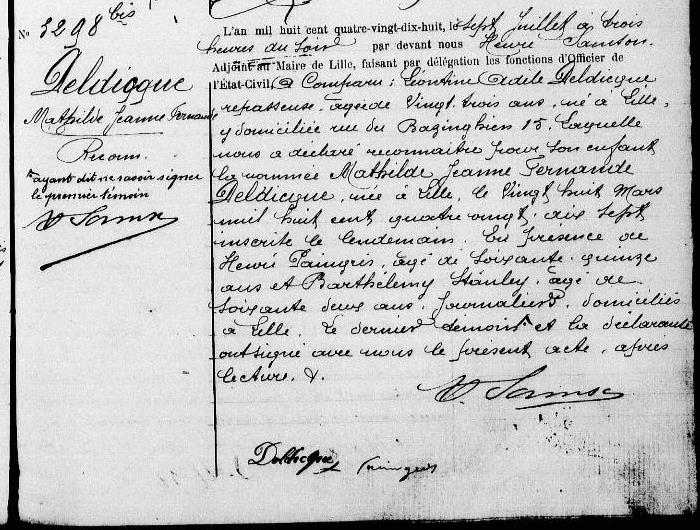 N° 3298 bis
Deldicque
Mathilde Jeanne Fernande
Reconn.
ayant dit ne savoir signer
le premier témoin
H. Samson
L'an mil huit cent quatre-vingt-dix-huit, le sept Juillet à trois
heures du soir par devant nous Henri Samson.
Adjoint au Maire de Lille, faisant par délégation les fonctions d'Officier de
l'État-Civil, a Comparu : Léontine Adèle Deldicque
repasseuse, agée de Vingt trois ans, née à Lille,
y domiciliée rue du Bazinghien 15. Laquelle
nous a déclaré reconnaitre pour son enfant
la nommée Mathilde Jeanne Fernande
Deldicque, née à Lille, le Vingt huit Mars
mil huit cent quatre vingt dix sept
inscrite le lendemain. En présence de
Henri Paingris, agé de Soixante quinze
ans et Barthélemy Stanley, agé de
Soixante deux ans, Journaliers, domiciliés
à Lille. Le dernier témoin et la déclarante
ont signé avec nous le présent acte, après
lecture. &.
H. Samson
Deldicque